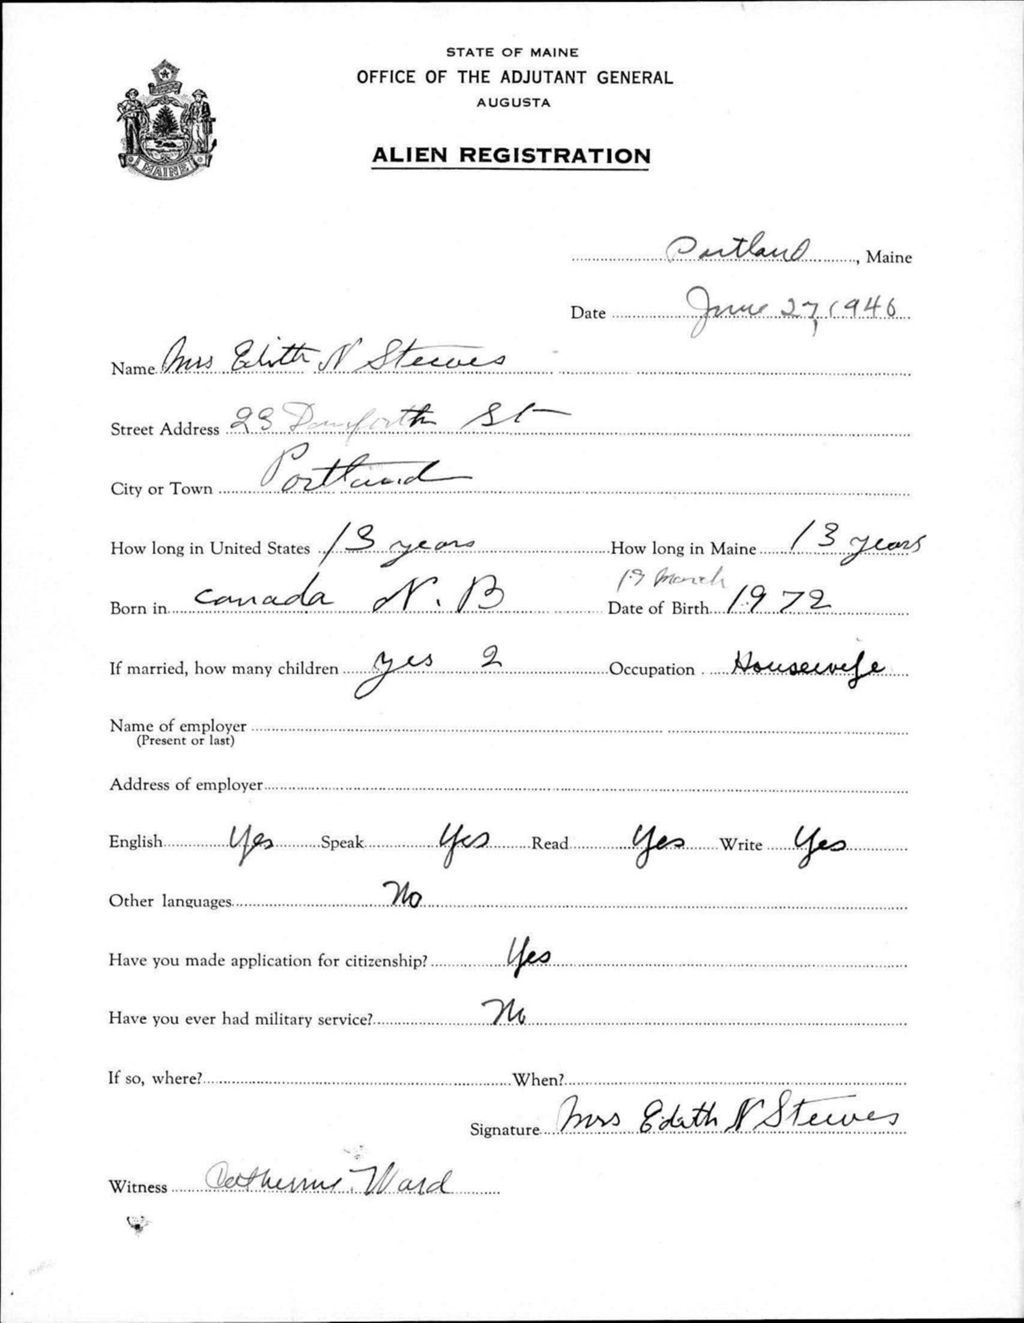 STATE OF MAINE
OFFICE OF THE ADJUTANT GENERAL
AUGUSTA
ALIEN REGISTRATION
MAINE
Portland, Maine
Date June 27, 1946
Name Mrs Edith N Steeves
Street Address 23 Danforth St
City or Town Portland
How long in United States 13 years How long in Maine 13 years
19 March
Born in Canada N. B Date of Birth 1972
If married, how many children yes 2 Occupation Housewife
Name of employer
(Present or last)
Address of employer
English Yes Speak Yes Read Yes Write Yes
Other languages No
Have you made application for citizenship? Yes
Have you ever had military service? No
If so, where? When?
Signature Mrs Edith N Steeves
Witness Catherine Ward